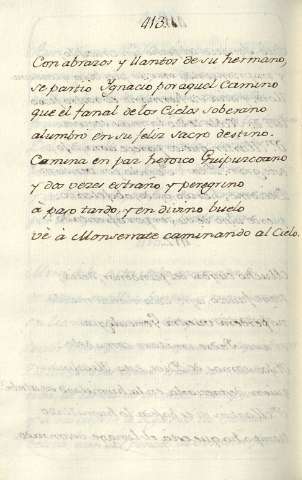 413.
Con abrazos y llantos de su hermano,
se partio Ygnacio por aquel Camino
que el fanal de los Cielos soberano
alumbrò en su feliz sacro destino.
Camina en paz heroico Guipuzcoano
y dos vezes estraño y peregrino
à paso tardo, y en divino buelo
vè à Monserrate caminando al Cielo.